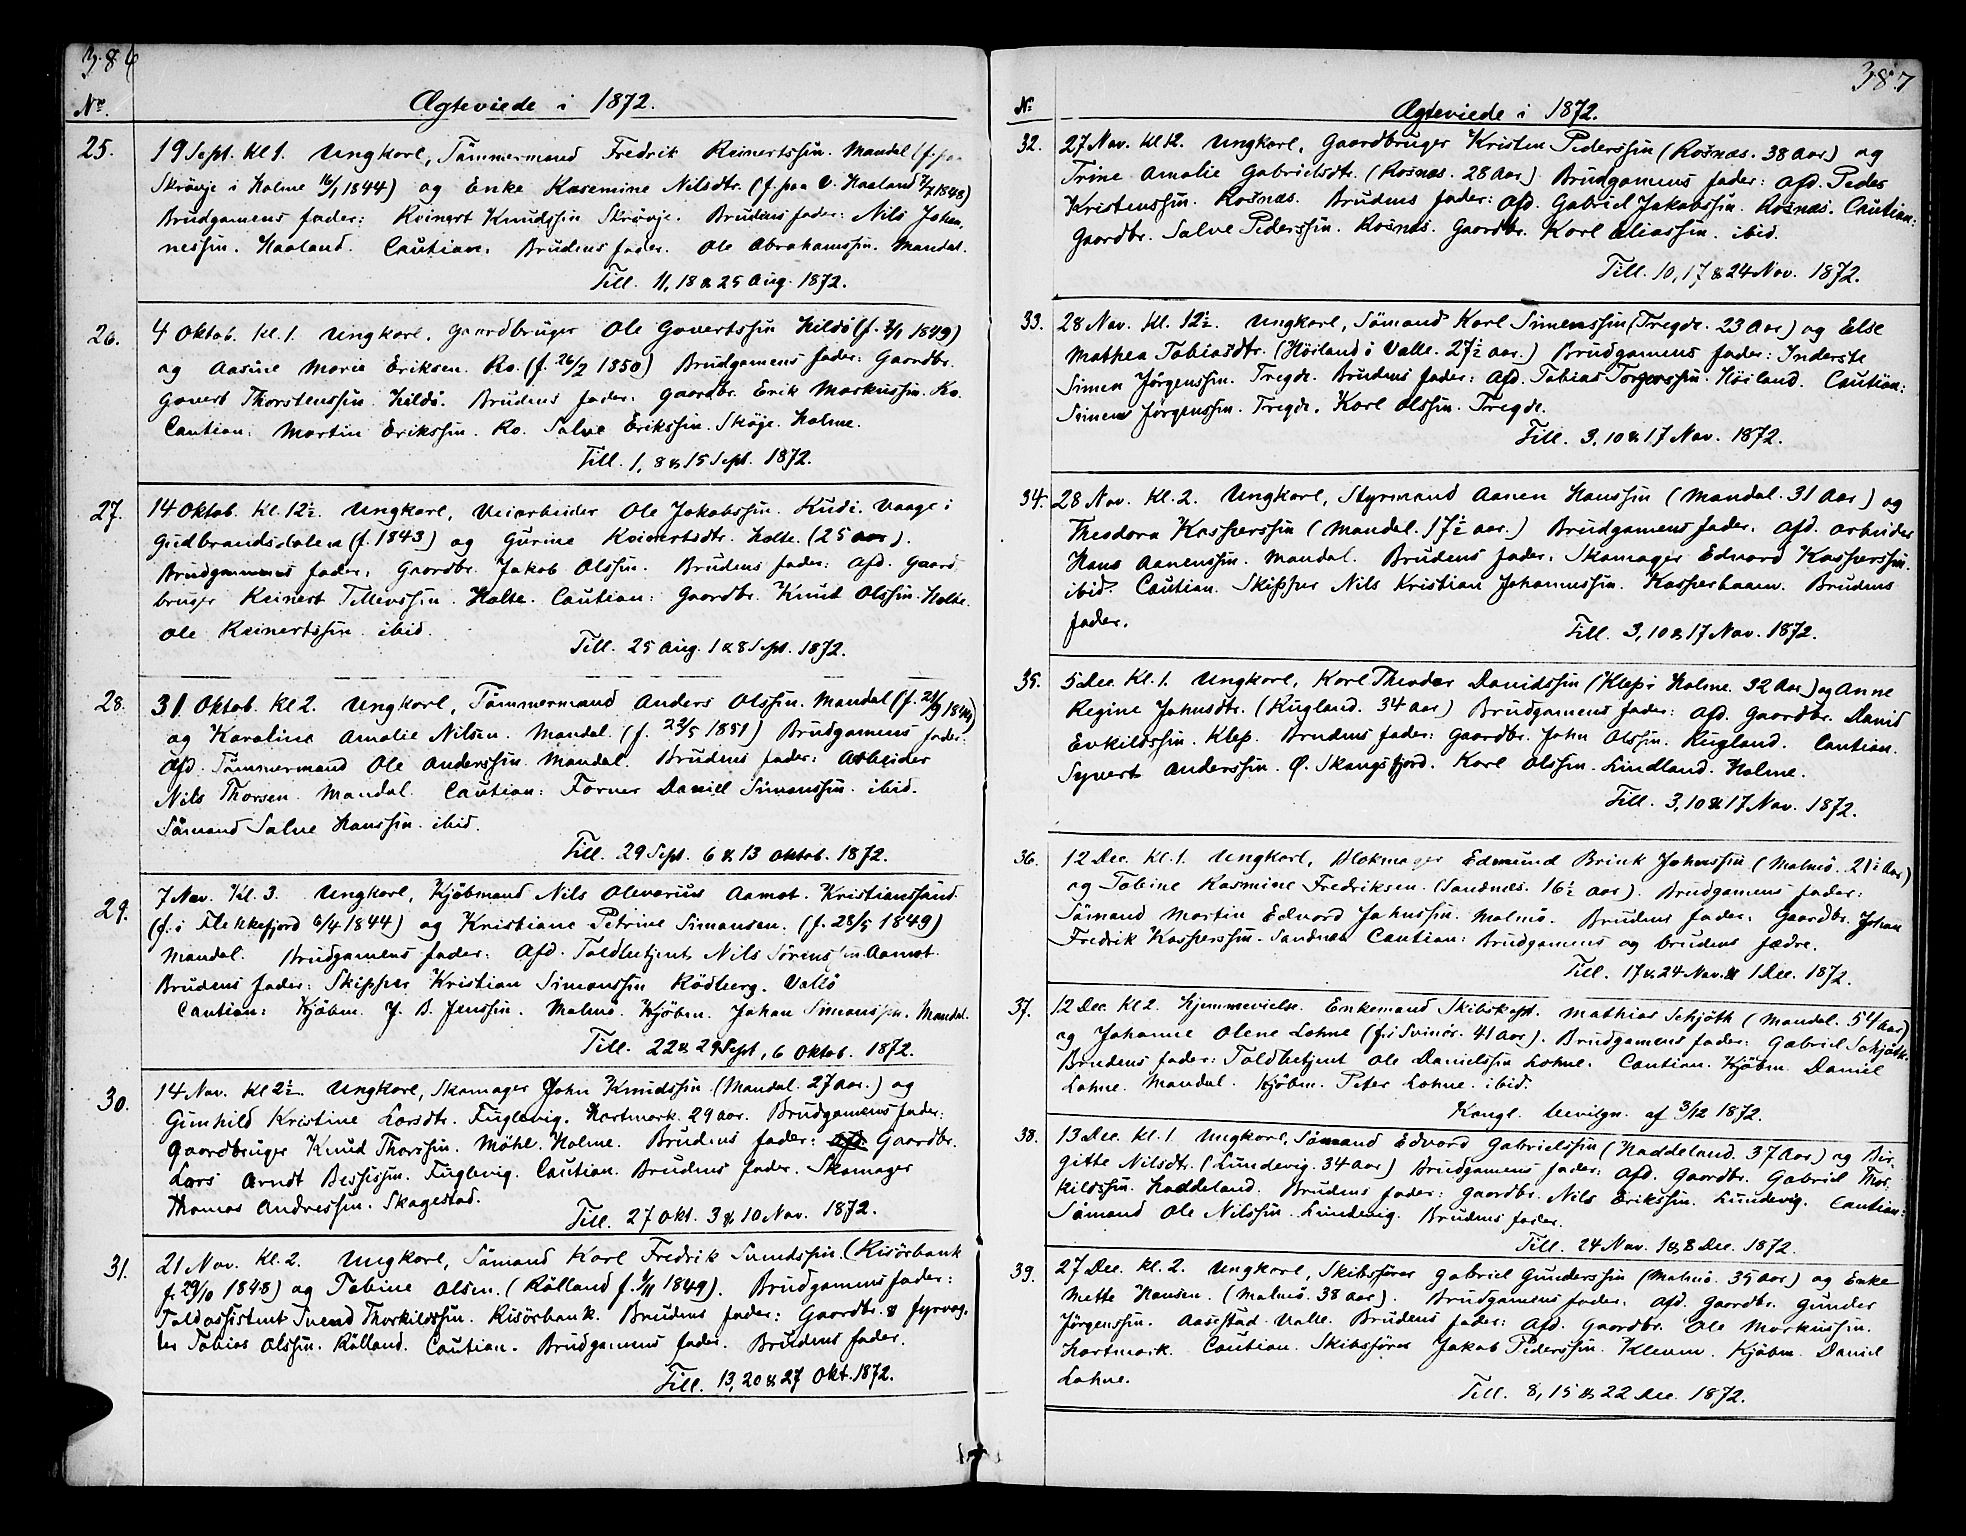 386
No. Ægteviede i 1872.
25. 19 Sept. Kl 1. Ungkarl, Tömmermand Fredrik Reinertssin. Mandal (f. paa
Skrövje i Holme 16/1 1844) og Enke Kasemine Nilsdtr. (f. paa V. Haaland 7/7 1848)
Brudgamens fader: Reinert Knudssin Skrövje. Brudens fader: Nils Johan,
nessin. Haaland. Caution: Brudens fader. Ole Abrahamssin. Mandal.
Till. 11, 18 & 25 Aug. 1872.
26. 4 Oktob. Kl. 1. Ungkarl, gaardbruger Ole Govertssin Hildö (f. 3/1 1849)
og Aasine Marie Eriksen. Ro. (f. 26/2 1850) Brudgamens fader: Gaardbr.
Govert Thorstenssin Hildö. Brudens fader: gaardbr. Erik Markussin. Ro.
Caution: Martin Erikssin. Ro. Salve Erikssin. Sköge. Holme.
Till. 1, 8 & 15 Sept. 1872.
27. 14 Oktob. Kl. 12½. Ungkarl, Veiarbeider Ole Jakobssin. Kudi. Vaage i
Gudbrandsdalen (f. 1843) og Gurine Reinertsdtr. Holte. (25 aar).
Brudgamens fader: Gaardbr. Jakob Olssin. Brudens fader: Afd. Gaard
bruger Reinert Tellevssin. Holte. Caution: Gaardbr. Knut Olssin. Holte.
Ole Reinertssin. ibid.
Till. 25 Aug. 1 & 8 Sept. 1872.
28. 31 Oktob. Kl 2. Ungkarl, Tömmermand Anders Olssin. Mandal (f. 21/9 1849)
og Karoline Amalie Nilsen. Mandal. (f. 22/5 1851) Brudgamens fader:
Afd. Tömmermand Ole Anderssin. Mandal. Brudens fader: Arbeider
Nils Thorsen. Mandal. Caution: Forner Daniel Simonssin. ibid.
Sömand Salve Hanssin. ibid.
Till. 29 Sept. 6 & 13 Oktob. 1872.
29. 7 Nov. Kl. 3. Ungkarl, Kjöbmand Nils Oleverius Aamot. Kristianssund.
(f. i Flekkefjord 6/4 1844) og Kristiane Petrine Simonsen. (f. 28/5 1849)
Mandal. Brudgamens fader: Afd. Toldbetjent Nils Sörenssin Aamot.
Brudens fader: Skipper Kristian Simonssin Rödberg. Vallö
Caution: Kjöbm. J. B. Jenssin. Malmö. Kjöbm. Johan Simonssin. Mandal.
Till. 22 & 29 Sept, 6 Oktob. 1872.
30. 14 Nov. Kl 2½. Ungkarl, Skomager John Knudssin (Mandal. 27 aar.) og
Gunhild Kristine Larsdtr. Fuglevig. Hartmark. 29 aar. Brudgamens fader:
Gaardbruger Knud Thorssin. Möhl. Holme. Brudens fader: Gaardbr.
Lars Arndt Bessesin. Fuglevig. Caution. Brudens fader. Skomager
Thomas Andressin. Skagestad.
Till. 27 Okt. 3 & 10 Nov. 1872.
31. 21 Nov. Kl. 2. Ungkarl, Sömand Karl Fredrik Svendssin. (Risörbank
f. 29/10 1848) og Tobine Olsen. (Rölland f. 9/11 1849). Brudgamens fader:
Toldassistent Svend Thorkildssin. Risörbank. Brudens fader: Gaardbr. & fyrvog,
ter Tobias Olssin. Rölland. Caution. Brudgamens fader. Brudens fader.
Till. 13, 20 & 27 Okt. 1872.
387
No Ægteviede i 1872.
32. 27 Nov. Kl 12. Ungkarl, Gaardbruger Kristen Pederssin (Rosnæs. 38 aar) og
Trine Amalie Gabrielsdtr. (Rosnæs. 28 aar) Brudgamens fader: Afd. Peder
Kristenssin. Rosnæs. Brudens fader: Afd. Gabriel Jakobssin. Rosnæs. Caution:
Gaardbr. Salve Pederssin. Rosnæs. Gaardbr. Karl Eliassin. ibid.
Till. 10, 17 & 24 Nov. 1872.
33. 28 Nov. Kl. 12½. Ungkarl, Sömand Karl Simenssin (Tregde. 23 aar) og Else
Mathea Tobiasdtr. (Höiland i Valle. 27½ aar.) Brudgamens fader: Inderste
Simen Jörgenssin. Tregde. Brudens fader: Afd. Tobias Torjerssin. Höiland. Caution:
Simen Jörgenssin. Tregde. Karl Olssin. Tregde.
Till. 3, 10 & 17 Nov. 1872.
34. 28 Nov. Kl. 2. Ungkarl, Styrmand Aanen Hanssin (Mandal. 31 aar) og
Theodora Kasperssin (Mandal. 17½ aar.) Brudgamens fader: Afd. arbeider
Hans Aanenssin. Mandal. Brudens fader: Skomager Edvard Kasperssin.
ibid. Caution. Skipper Nils Kristian Johannssin. Kasperbaaen. Brudens
fader.
Till. 3, 10 & 17 Nov. 1872.
35. 5 Dec. Kl. 1. Ungkarl, Karl Theodor Davidssin (Klep i Holme. 32 aar) og Anne
Regine Johnsdtr. (Rugland. 34 aar) Brudgamens fader: Afd. Gaardbr. David
Evkildssin. Klep. Brudens fader: Gaardbr. John Olssin. Rugland. Caution.
Syvert Anderssin. Ø. Skangsfjord. Karl Olssin. Lindland. Holme.
Till. 3, 10 & 17 Nov. 1872.
36. 12 Dec. Kl. 1. Ungkarl, Blokmager Edmund Brink Johnssin (Malmö. 21½ aar)
og Tobine Rasmine Fredriksen. (Sandnæs. 16½ aar). Brudgamens fader:
Sömand Martin Edvard Johnssin. Malmö. Brudens fader: Gaardbr. Johan
Fredrik Kasperssin. Sandnæs. Caution: Brudgamens og brudens fædre.
Till. 17 & 24 Nov. & 1 Dec. 1872.
37. 12 Dec. Kl 2. Hjemmevielse. Enkemand Skibskapt. Mathias Schjöth (Mandal. 54 aar)
og Johanne Olene Lohne (f. i Svinör. 41 aar). Brudgamens fader: Gabriel Schjöth.
Brudens fader: Toldbetjent Ole Danielssin Lohne. Caution. Kjöbm. Daniel
Lohne. Mandal. Kjöbm. Peter Lohne. ibid.
Kongl. bevilgn. af 3/12 1872.
38. 13 Dec. Kl. 1. Ungkarl, Sömand Edvard Gabrielssin (Haddeland. 37 aar) og Bir,
gitte Nilsdtr. (Lundevig. 34 aar) Brudgamens fader: Afd. Gaardbr. Gabriel Thor,
kildssin. Haddeland. Brudens fader: Gaardbr. Nils Erikssin. Lundevig. Caution:
Sömand Ole Nilssin. Lundevig. Brudens fader.
Till. 24 Nov. 1 & 8 Dec. 1872.
39. 27 Dec. Kl. 2. Ungkarl, Skibsförer Gabriel Gunderssin (Malmö. 35 aar) og Enke
Mette Hansen. (Malmö. 38 aar). Brudgamens fader: Afd. Gaardbr. Gunder
Jörgenssin. Aasestad. Valle. Brudens fader: Afd. Gaardbr. Ole Markussin.
Hartmark. Caution. Skibsförer Jakob Pederssin. Kleven. Kjöbm. Daniel
Lohne.
Till. 8, 15 & 22 Dec. 1872.